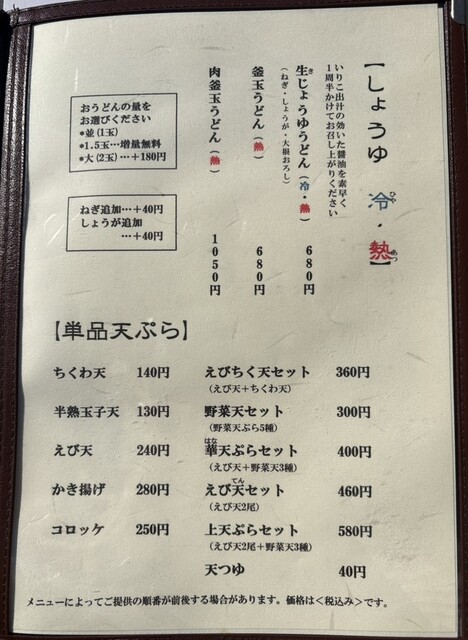 【しょうゆ 冷・熱】
いりこ出汁の効いた醤油を素早く
1周半かけてお召し上がりください
生じょうゆうどん（冷・熱） 680円
（ねぎ・しょうが・大根おろし）
釜玉うどん（熱） 680円
肉釜玉うどん（熱） 1050円
おうどんの量を
お選びください
*並(1玉)
*1.5玉…増量無料
*大(2玉)…+180円
ねぎ追加…+40円
しょうが追加
…+40円
【単品天ぷら】
ちくわ天 140円
半熟玉子天 130円
えび天 240円
かき揚げ 280円
コロッケ 250円
えびちく天セット 360円
（えび天+ちくわ天）
野菜天セット 300円
（野菜天ぷら5種）
華天ぷらセット 400円
（えび天+野菜天3種）
えび天セット 460円
（えび天2尾）
上天ぷらセット 580円
（えび天2尾+野菜天3種）
天つゆ 40円
メニューによってご提供の順番が前後する場合があります。価格は<税込み>です。